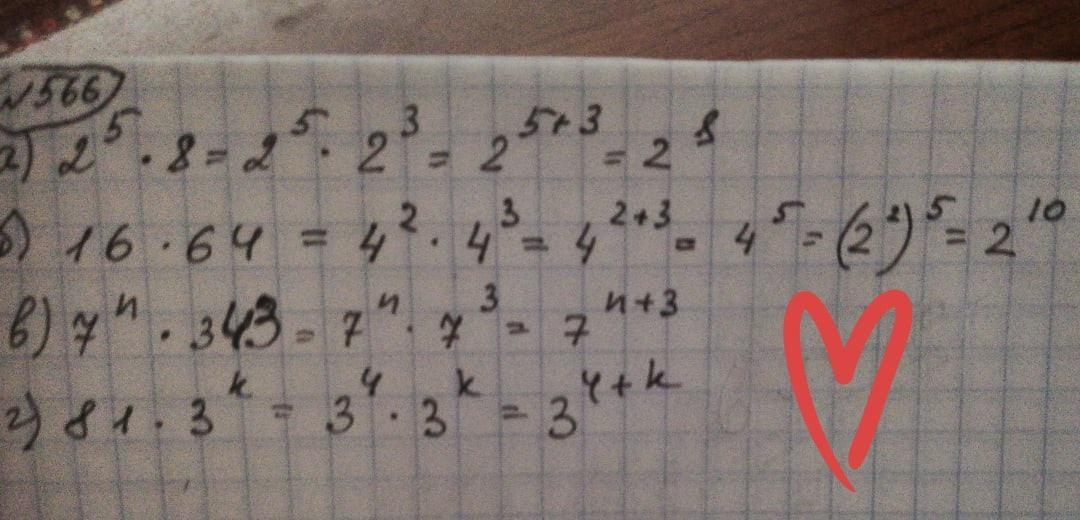 №566
а) 2⁵ · 8 = 2⁵ · 2³ = 2⁵⁺³ = 2⁸
б) 16 · 64 = 4² · 4³ = 4²⁺³ = 4⁵ = (2²)⁵ = 2¹⁰
в) 7ⁿ · 343 = 7ⁿ · 7³ = 7ⁿ⁺³
г) 81 · 3ᵏ = 3⁴ · 3ᵏ = 3⁴⁺ᵏ